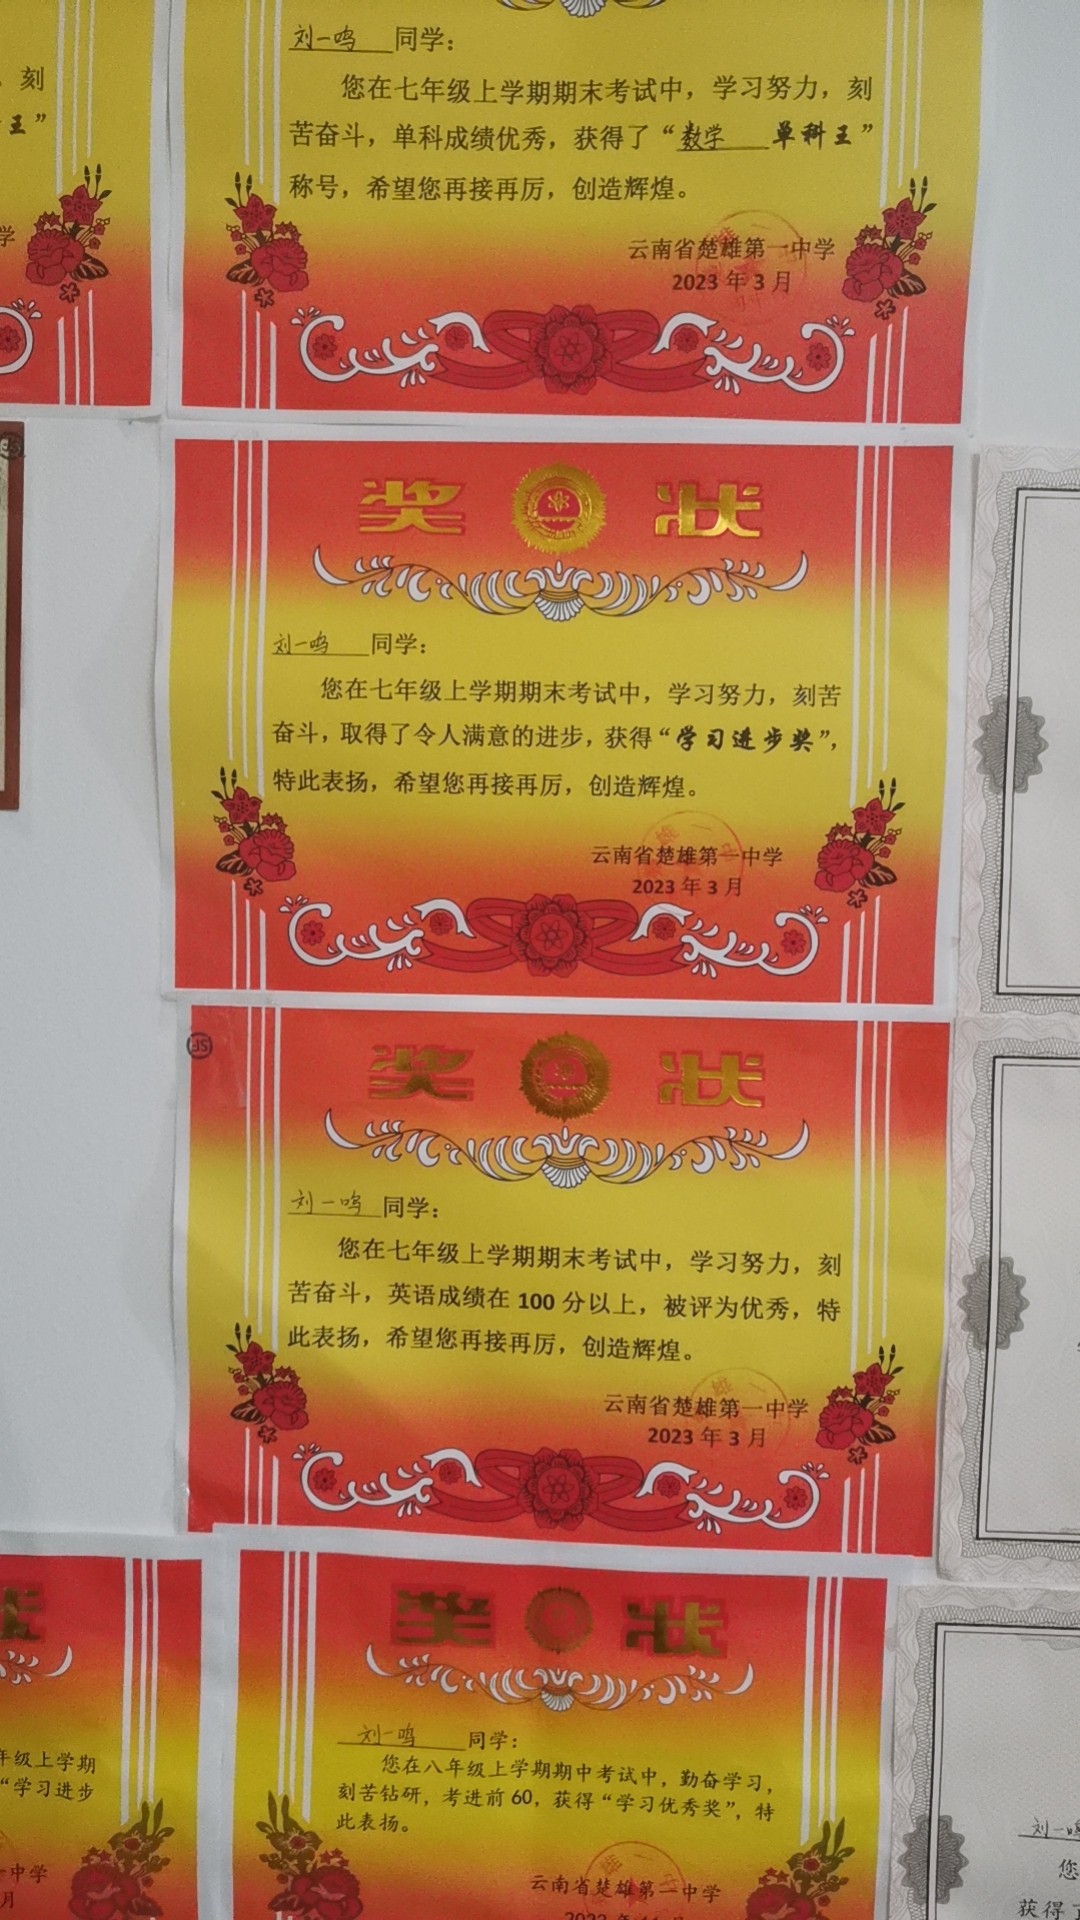 刻
王”
学
刘一鸣 同学：
您在七年级上学期期末考试中，学习努力，刻
苦奋斗，单科成绩优秀，获得了“数学 单科王”
称号，希望您再接再厉，创造辉煌。
云南省楚雄第一中学
2023 年 3 月
奖 状
刘一鸣 同学：
您在七年级上学期期末考试中，学习努力，刻苦
奋斗，取得了令人满意的进步，获得“学习进步奖”，
特此表扬，希望您再接再厉，创造辉煌。
云南省楚雄第一中学
2023 年 3 月
SF
奖 状
刘一鸣 同学：
您在七年级上学期期末考试中，学习努力，刻
苦奋斗，英语成绩在 100 分以上，被评为优秀，特
此表扬，希望您再接再厉，创造辉煌。
云南省楚雄第一中学
2023 年 3 月
状
年级上学期
“学习进步
一中学
月
奖 状
刘一鸣 同学：
您在八年级上学期期中考试中，勤奋学习，
刻苦钻研，考进前 60，获得“学习优秀奖”，特
此表扬。
云南省楚雄第一中学
刘一鸣
您
获得